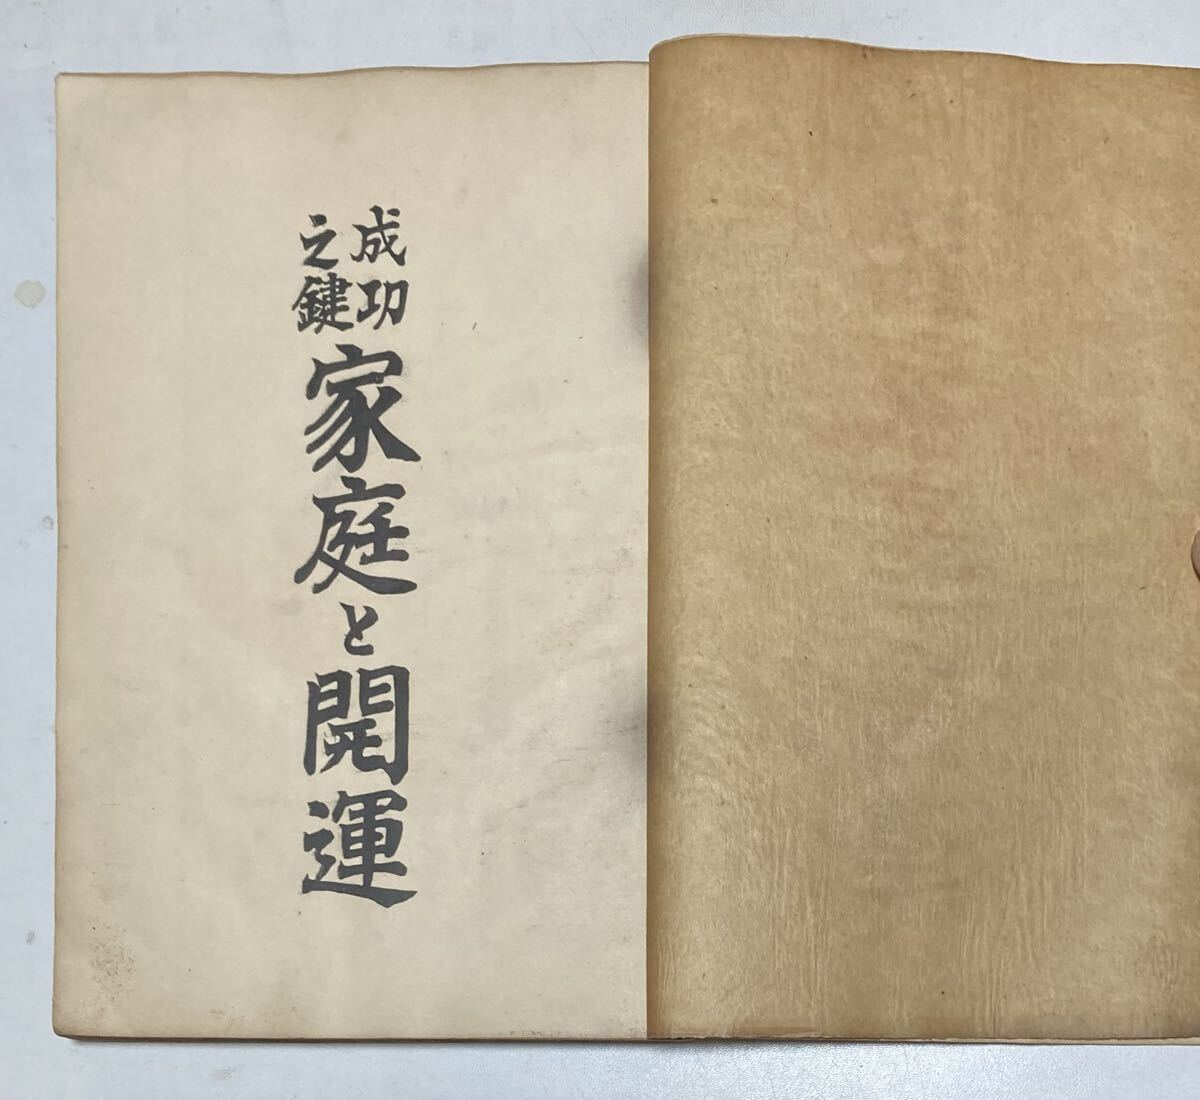 成功
之鍵
家庭と開運